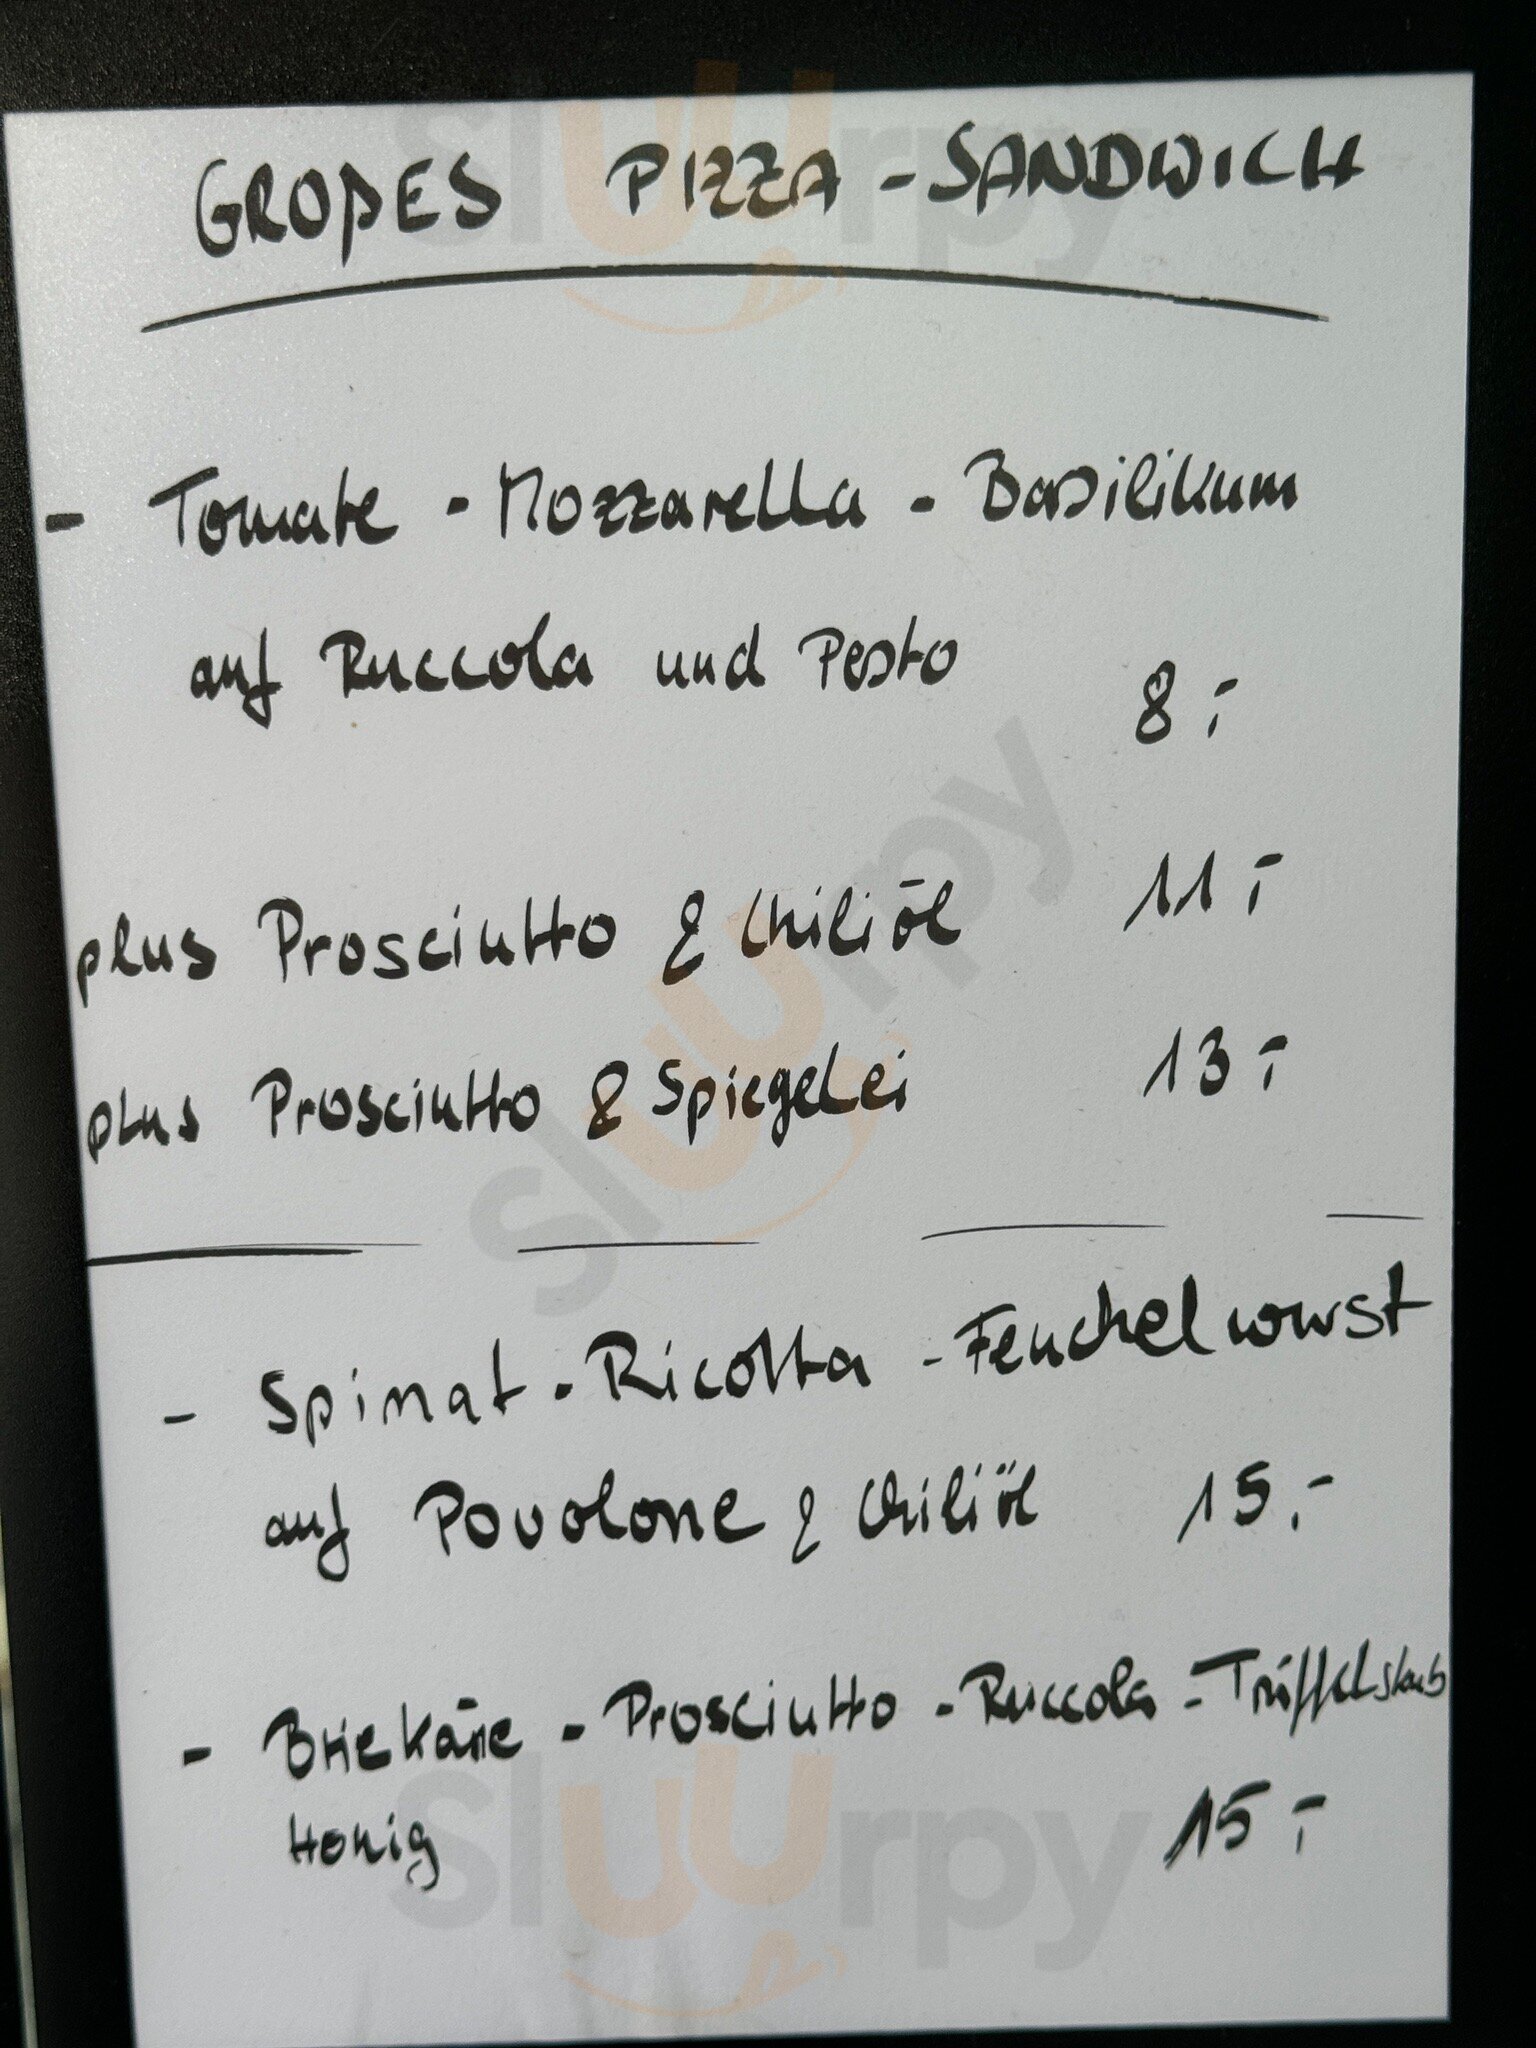 GROßES PIZZA-SANDWICH
- Tomate - Mozzarella - Basilikum
auf Ruccola und Pesto
8,-
plus Prosciutto & Chiliöl 11,-
plus Prosciutto & Spiegelei 13,-
- Spinat - Ricotta - Fenchelwurst
auf Povolone & Chiliöl 15,-
- Briekäse - Prosciutto - Ruccola - Trüffelstaub
Honig 15,-
sluurpy
sluurpy
sluurpy